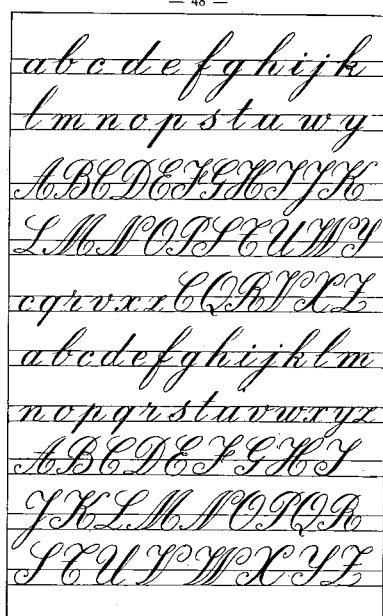 — 48 —
a b c d e f g h i j k
l m n o p s t u w y
A B C D E F G H I J K
L M N O P S T U W Y
c q r v x z C Q R V X Z
a b c d e f g h i j k l m
n o p q r s t u v w x y z
A B C D E F G H I
J K L M N O P Q R
S T U V W X Y Z